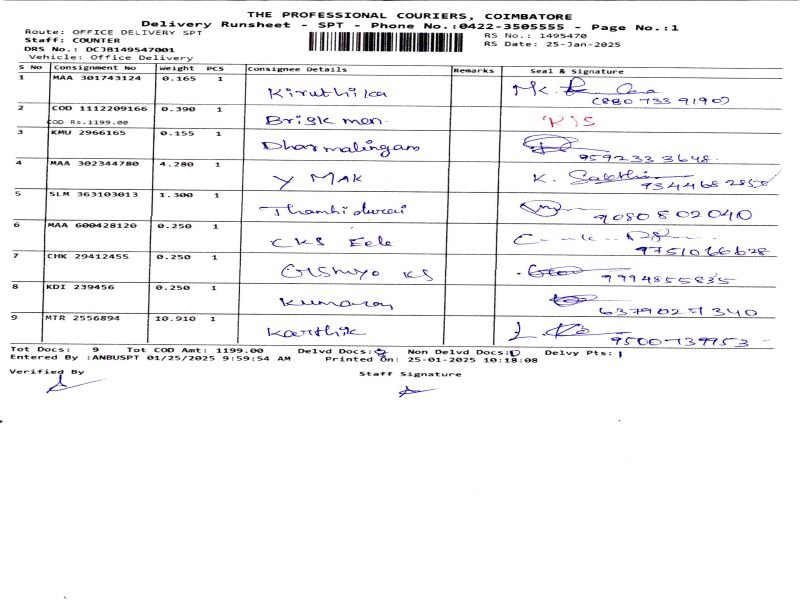 THE PROFESSIONAL COURIERS, COIMBATORE
Delivery Runsheet - SPT - Phone No.:0422-3505555 - Page No.:1
Route: OFFICE DELIVERY SPT
RS No.: 1495470
Staff: COUNTER
RS Date: 25-Jan-2025
DRS No.: DCJB149547001
Vehicle: Office Delivery
S No Consignment No Weight PCS Consignee Details Remarks Seal & Signature
1 MAA 301743124 0.165 1 Kiruthika
2 COD 1112209166 0.390 1 Brisk men
COD Rs.1199.00
3 KMU 2966165 0.155 1 Dharmalingam
4 MAA 302344780 4.280 1 Y MAK K. Sakthi
5 SLM 363103013 1.300 1 Thambidurai 9080802040
6 MAA 600428120 0.250 1 CKS 9751066628
7 CHK 29412455 0.250 1 KS 9994855835
8 KDI 239456 0.250 1 Kumaran
9 MTR 2556894 10.910 1 Karthik 9500739953
Tot Docs: 9 Tot COD Amt: 1199.00 Delvd Docs: 9 Non Delvd Docs: 0 Delvy Pts: 1
Entered By :ANBUSPT 01/25/2025 9:59:54 AM Printed On: 25-01-2025 10:18:08
Verified By Staff Signature